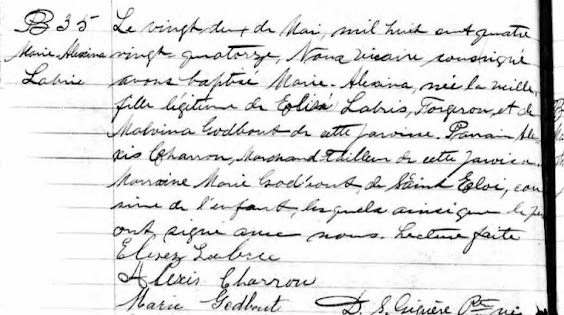 B35
Marie-Alexina
Labrie
Le vingt deux de Mai, mil huit cent quatre
vingt quatorze, Nous vicaire soussigné
avons baptisé Marie-Alexina, née la veille,
fille légitime de Labrie, Forgeron, et de
Malvina Godbout de cette paroisse. Parrain Ale-
xis Charron, Marchand tailleur de cette paroisse.
Marraine Marie Godbout de Saint Eloi, cou
sine de l'enfant, lesquels ainsi que le père
ont signé avec nous. Lecture faite
Labrie
Alexis Charron
Marie Godbout D. S. Ptre vic